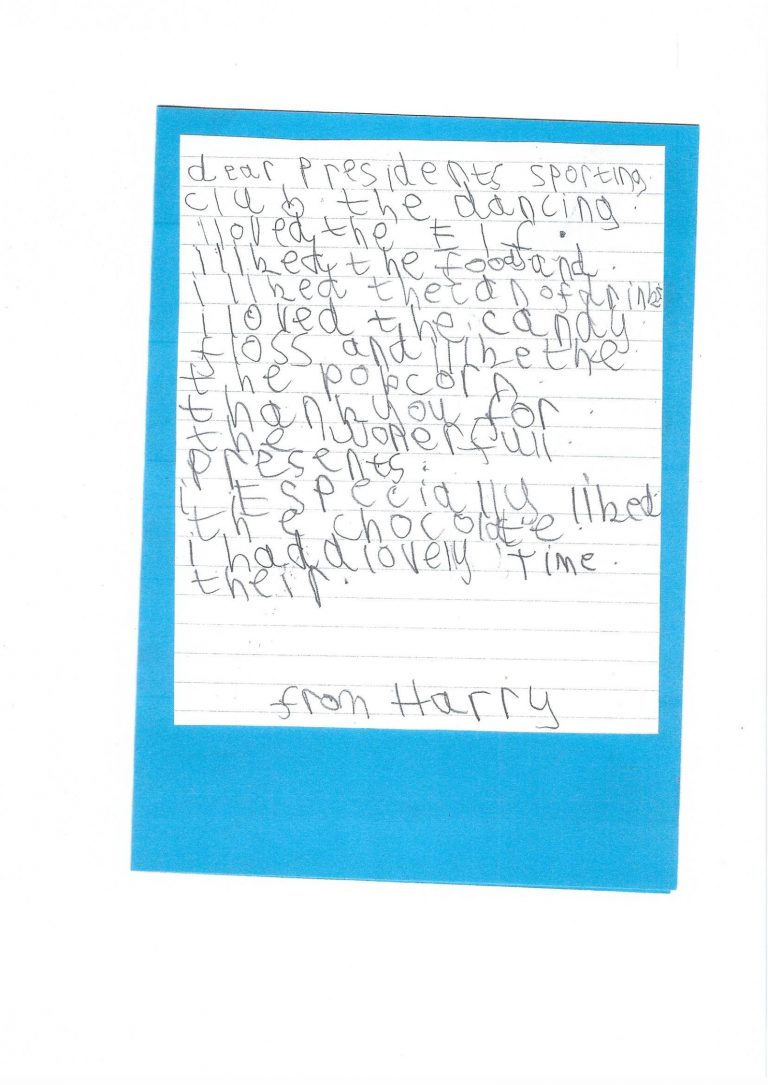 dear Presidents sporting
club. the dancing.
i loved the Elf.
i liked the food and.
i liked the can of drinks
i loved the candy
floss and i like the
the popcorn.
thank you for.
the wonerfull
presents.
i Especially liked
the chocolate
i had a lovely time.
their.
from Harry